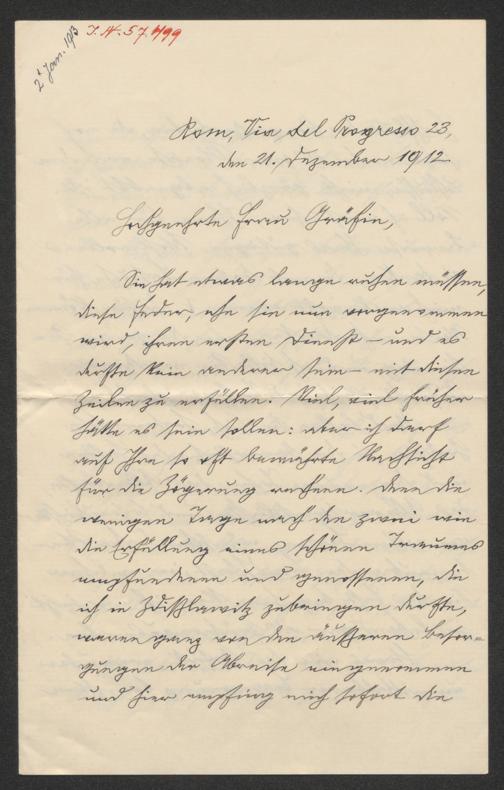 2t Jan. 1913
I. N. 57.499
Rom, Via del Progresso 23,
den 21. Dezember 1912.
Hochgeehrte Frau Gräfin,
Sie hat etwas lange ruhen müssen,
diese Feder, ehe sie nun vorgenommen
wird, ihren ersten Dienst – und es
durfte kein anderer sein – mit diesen
Zeilen zu erfüllen. Viel, viel früher
hätte es sein sollen: aber ich darf
auf Ihre so oft bewährte Nachsicht
für die Zögerung rechnen. Denn die
wenigen Tage nach den zwei wie
die Erfüllung eines schönen Traumes
empfundenen und genossenen, die
ich in Zdißlawitz zubringen durfte,
waren ganz von den äußeren Besor-
gungen der Abreise eingenommen
und hier empfing mich sofort die